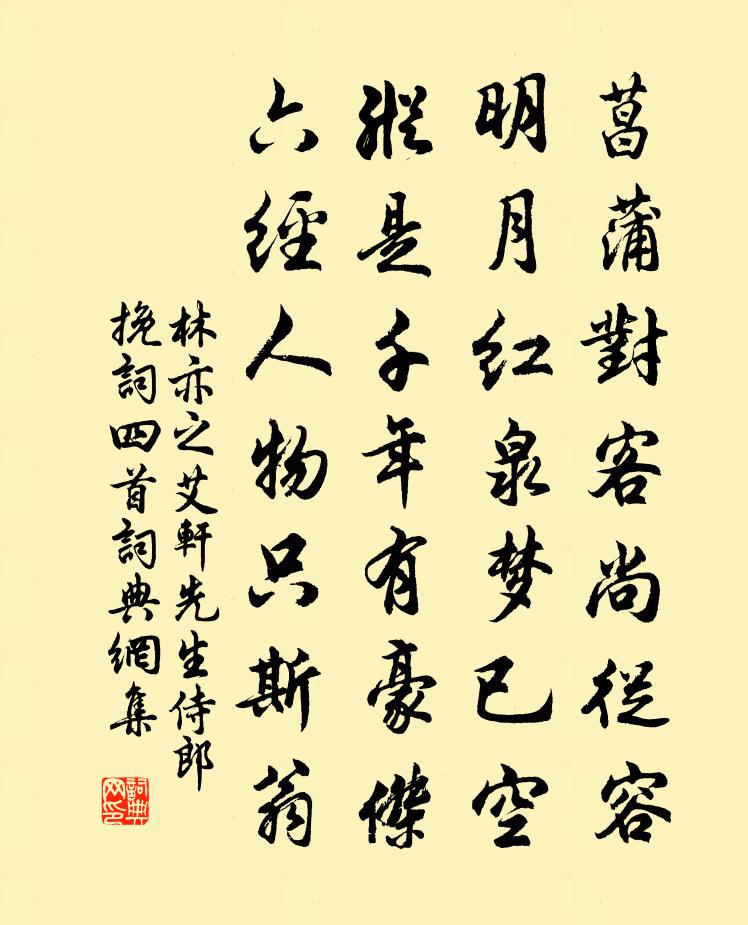 菖蒲對客尚從容
明月红泉梦已空
縱是千年有豪傑
六經人物只斯翁
林亦之艾軒先生侍郎
挽詞四首詞典網集
詞典
网印